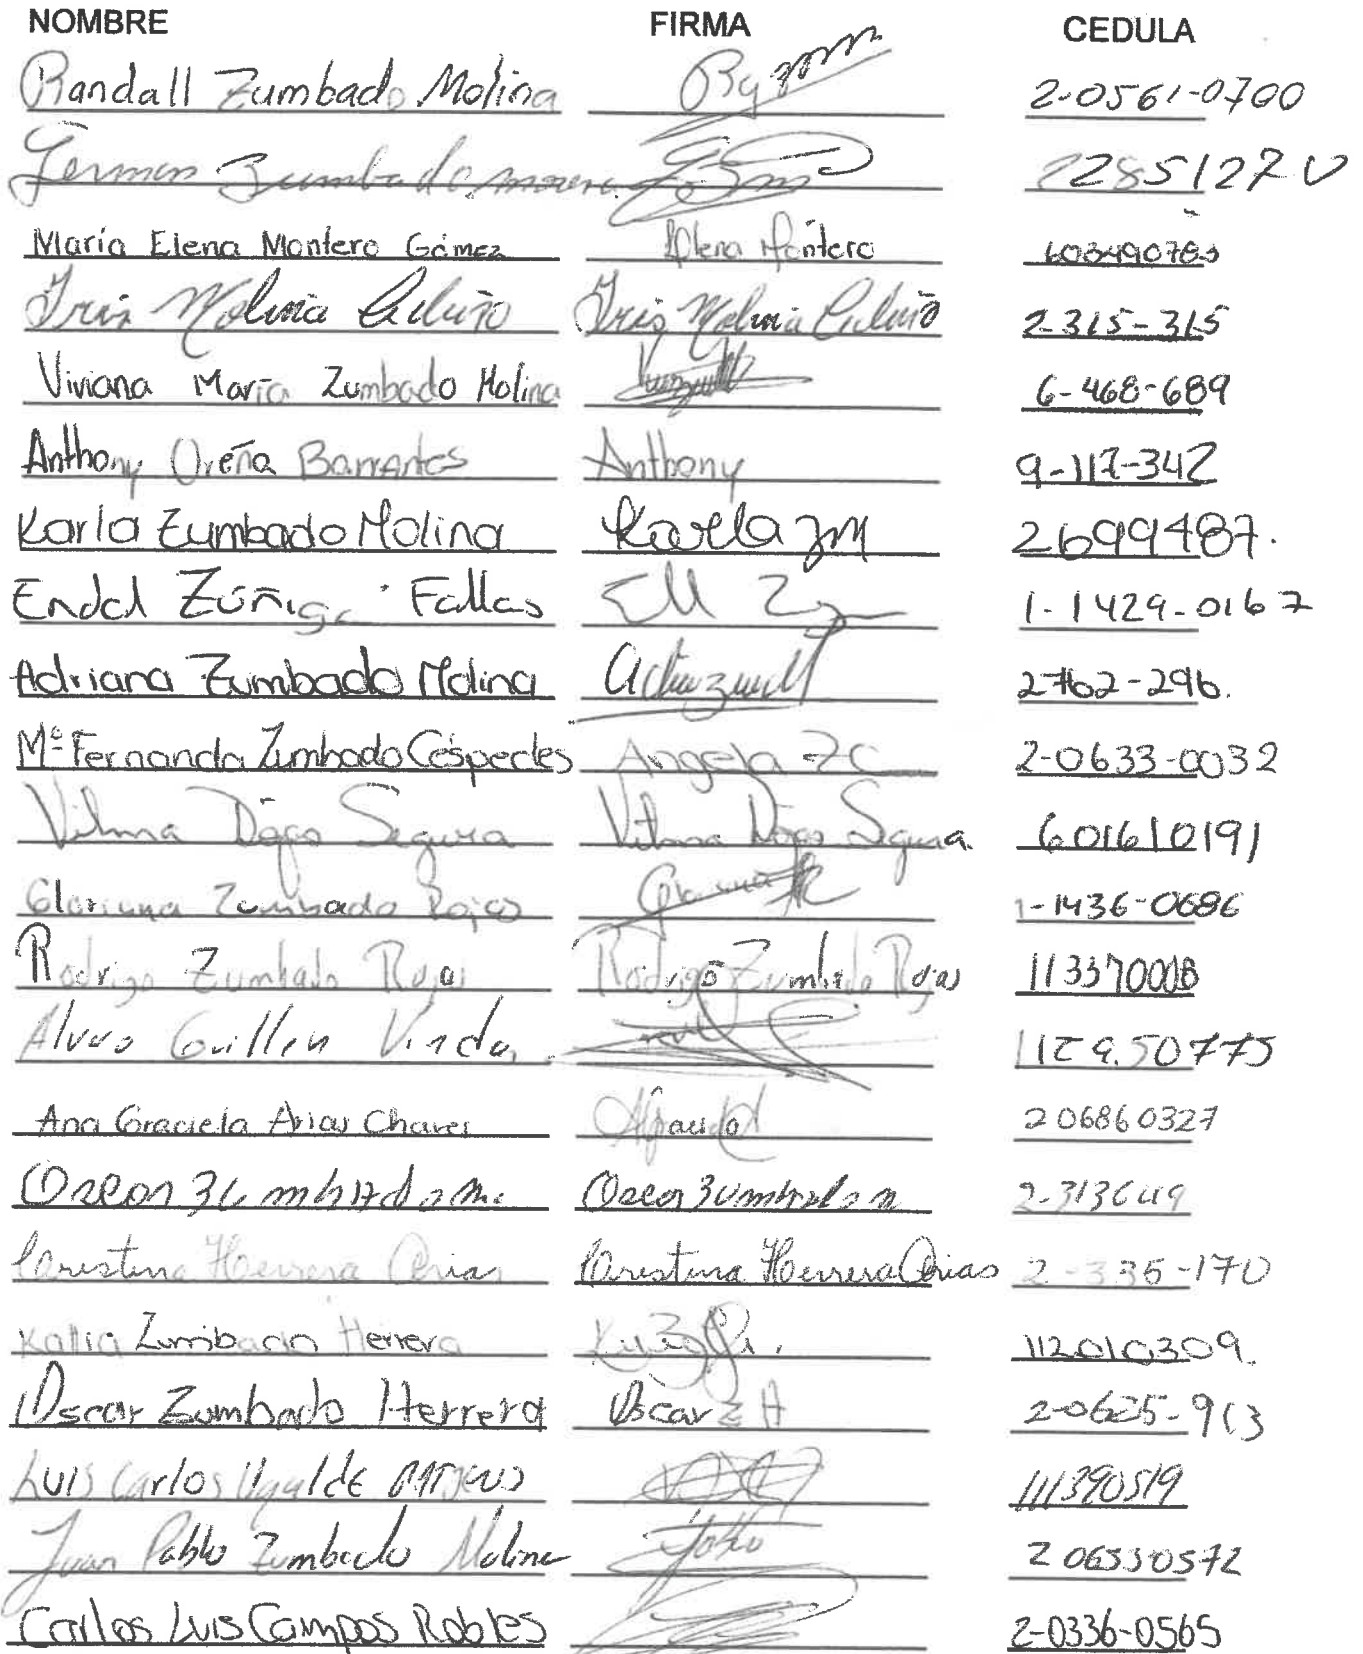 NOMBRE FIRMA CEDULA
Randall Zumbado Molina 2-0561-0700
German Zumbado moreira 22851270
María Elena Montero Gómez Elena Montero 603490783
Iris Molina Cedeño Iris Molina Cedeño 2-315-315
Viviana María Zumbado Molina 6-468-689
Anthony Ureña Barrantes Anthony 9-117-342
Karla Zumbado Molina Karla ZM 2699487.
Endel Zúñiga Fallas 1-1429-0167
Adriana Zumbado Molina 2762-296.
Mª Fernanda Zumbado Céspedes Angela ZC 2-0633-0032
Vilma Rojas Segura Vilma Rojas Segura. 601610191
Gloriana Zumbado Rojas 1-1436-0686
Rodrigo Zumbado Rojas Rodrigo Zumbado Rojas
Alvaro Guillen Vindas
Ana Graciela Arias Chaves 206860327
Oscar Zumbado Oscar Zumbado m
Cristina Herrera Arias Cristina Herrera Arias 2-335-170
Kattia Zumbado Herrera 112010309.
Oscar Zumbado Herrera Oscar Z H 2-0625-913
Luis Carlos Ugalde 111390519
Juan Pablo Zumbado Molina 206530572
Carlos Luis Campos Robles 2-0336-0565